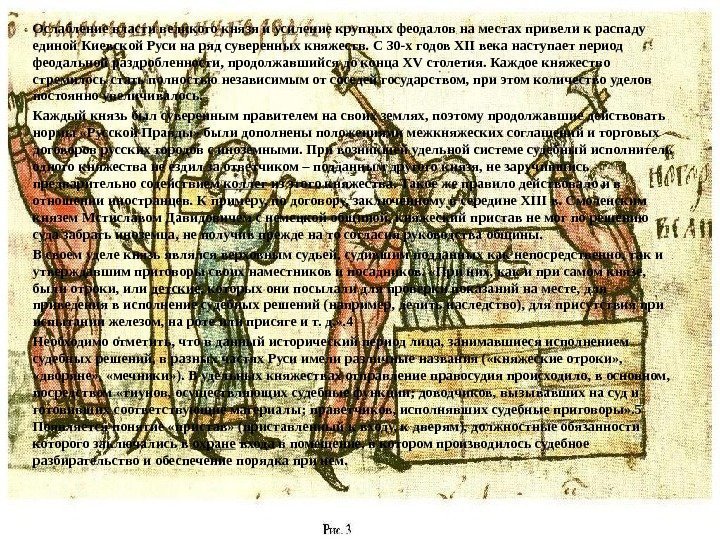 Ослабление власти великого князя и усиление крупных феодалов на местах привели к распаду
единой Киевской Руси на ряд суверенных княжеств. С 30-х годов XII века наступает период
феодальной раздробленности, продолжавшийся до конца XV столетия. Каждое княжество
стремилось стать полностью независимым от соседей государством, при этом количество уделов
постоянно увеличивалось.
Каждый князь был суверенным правителем на своих землях, поэтому продолжавшие действовать
нормы «Русской Правды» были дополнены положениями межкняжеских соглашений и торговых
договоров русских городов с иноземными. При возникшей удельной системе судебный исполнитель
одного княжества не ездил за ответчиком – подданным другого князя, не заручившись
предварительно содействием коллег из этого княжества. Такое же правило действовало и в
отношении иностранцев. К примеру, по договору, заключенному в середине XIII в. Смоленским
князем Мстиславом Давидовичем с немецкой общиной, княжеский пристав не мог по решению
суда забрать иноземца, не получив прежде на то согласия руководства общины.
В своем уделе князь являлся верховным судьей, судившим подданных как непосредственно, так и
утверждавшим приговоры своих наместников и посадников. «При них, как и при самом князе,
были отроки, или детские, которых они посылали для проверки показаний на месте, для
приведения в исполнение судебных решений (например, делить наследство), для присутствия при
испытании железом, на роте или присяге и т. д.».4
Необходимо отметить, что в данный исторический период лица, занимавшиеся исполнением
судебных решений, в разных частях Руси имели различные названия («княжеские отроки»,
«дворяне», «мечники»). В удельных княжествах отправление правосудия происходило, в основном,
посредством «тиунов, осуществляющих судебные функции; доводчиков, вызывавших на суд и
готовивших соответствующие материалы; праветчиков, исполнявших судебные приговоры».5
Появляется понятие «пристав» (приставленный к входу, к дверям), должностные обязанности
которого заключались в охране входа в помещение, в котором производилось судебное
разбирательство и обеспечение порядка при нем.
Рис. 3